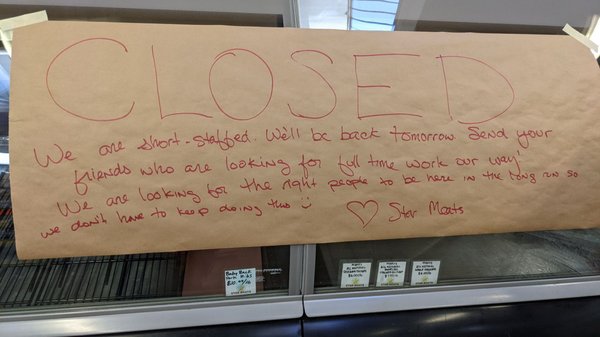 CLOSED
We are short-staffed. We'll be back tomorrow. Send your
friends who are looking for full time work our way!
We are looking for the right people to be here in the long run so
we don't have to keep doing this :) ♡ Star Meats
Baby Back